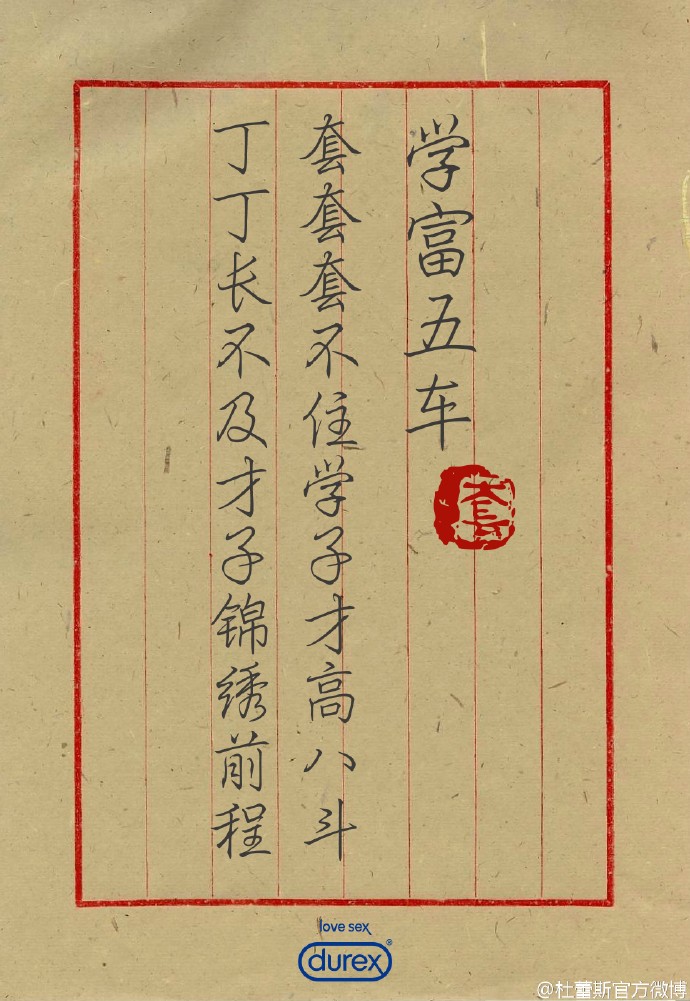 学富五车
套
套套套不住学子才高八斗
丁丁长不及才子锦绣前程
love sex
durex®
@杜蕾斯官方微博